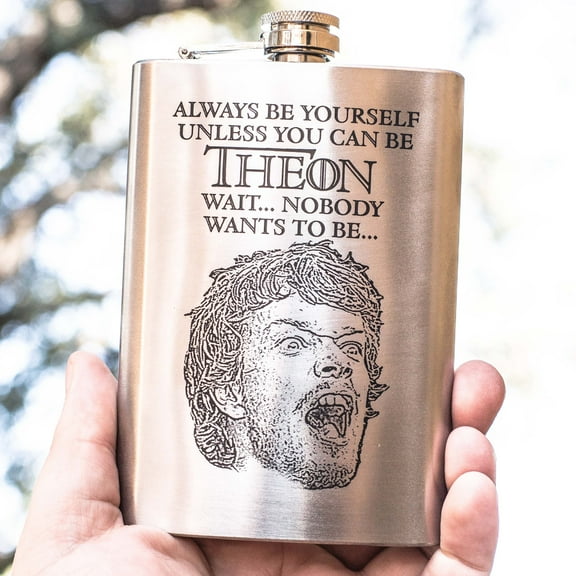 ALWAYS BE YOURSELF
UNLESS YOU CAN BE
THEON
WAIT... NOBODY
WANTS TO BE...